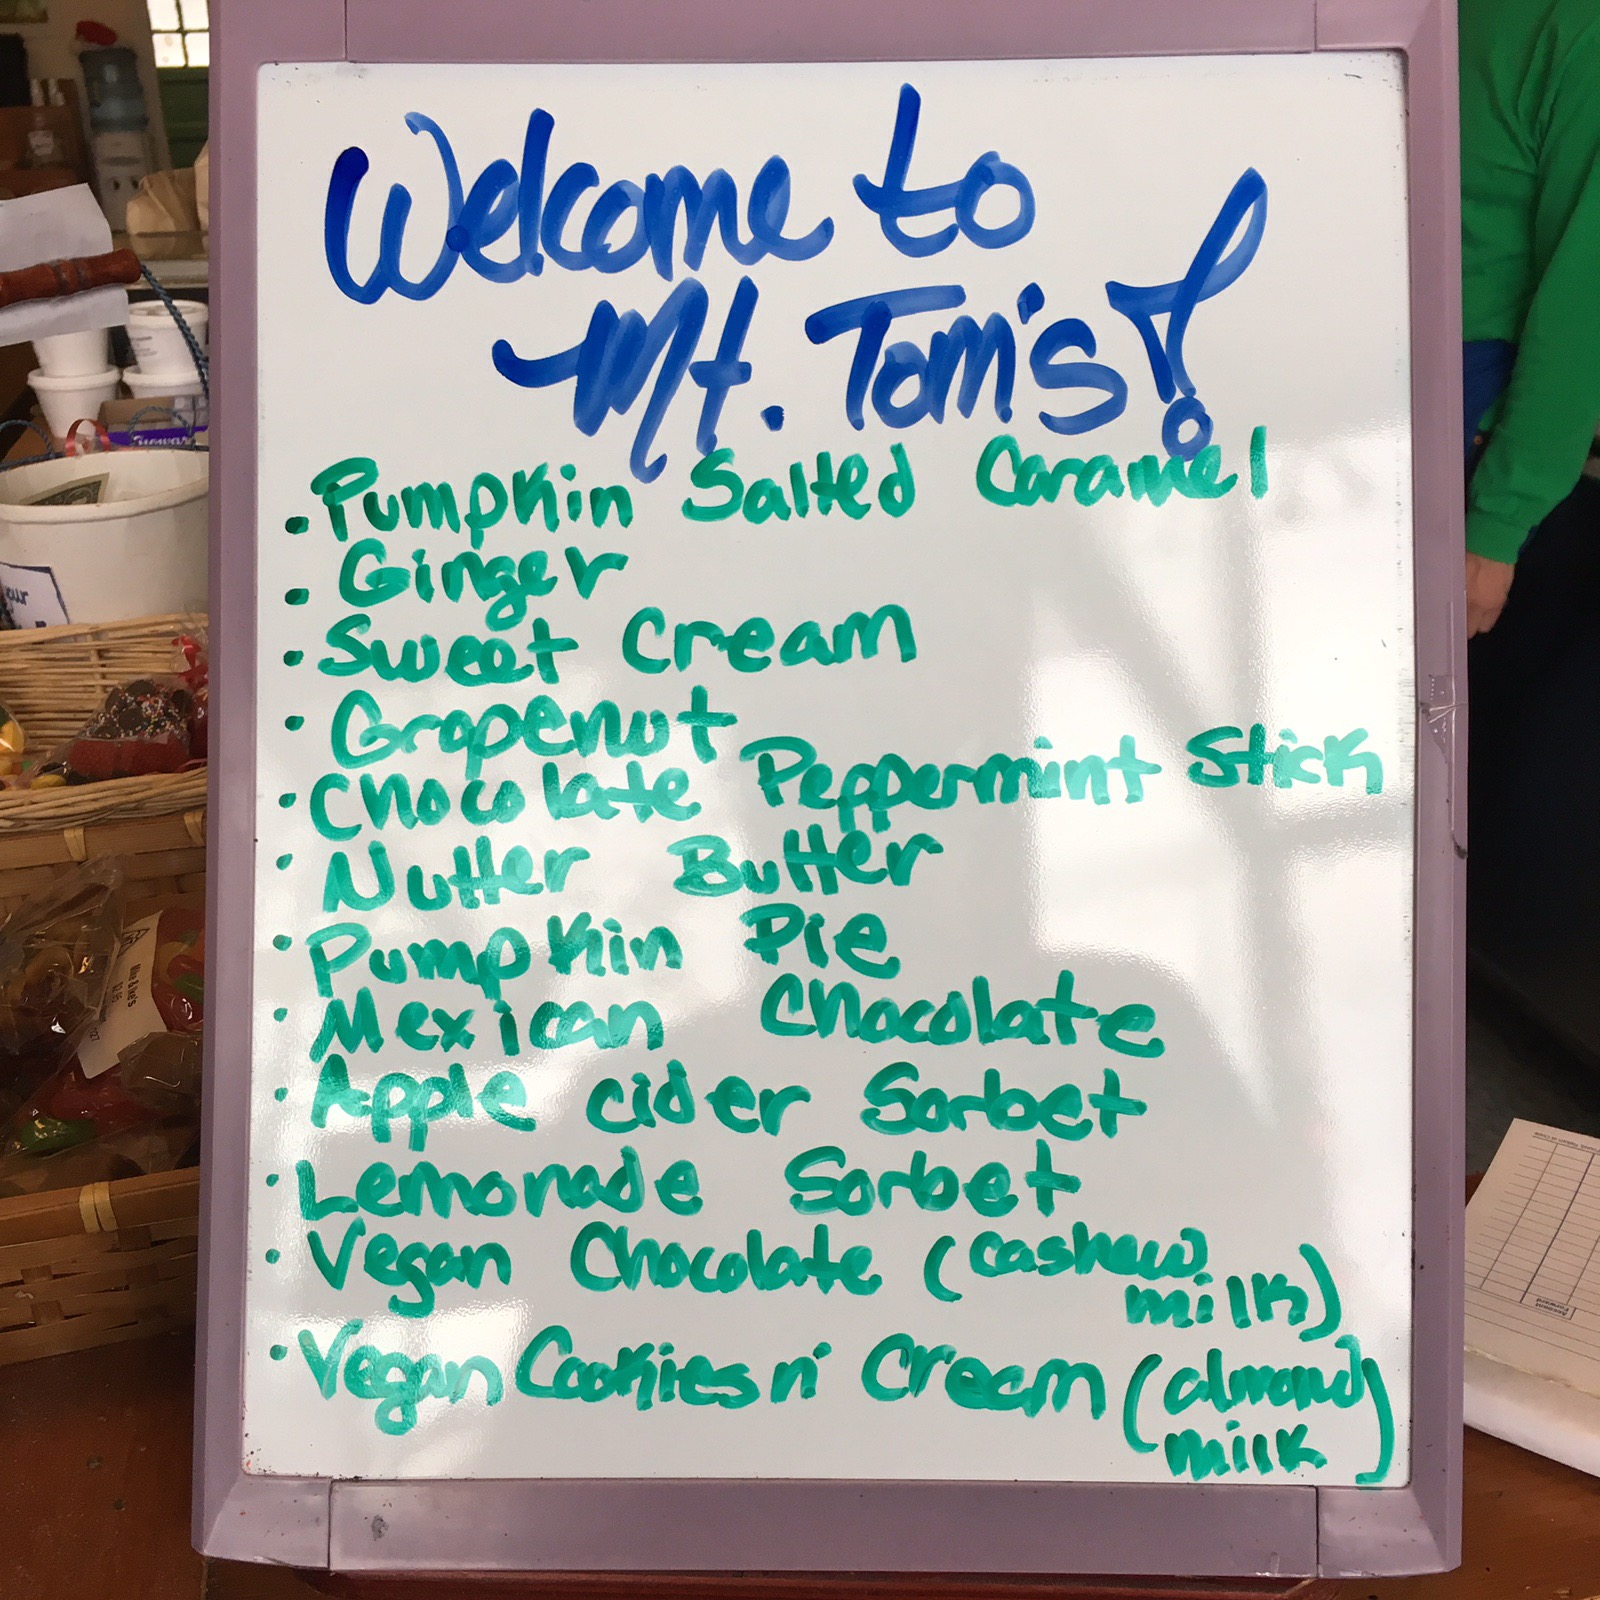 Welcome to
Mt. Tom's!
• Pumpkin Salted Caramel
• Ginger
• Sweet Cream
• Grapenut
• Chocolate Peppermint Stick
• Nutter Butter
• Pumpkin Pie
• Mexican Chocolate
• Apple cider Sorbet
• Lemonade Sorbet
• Vegan Chocolate (cashew
milk)
• Vegan Cookies n' Cream (almond
milk)
Mike & Ike's
Account
Forward